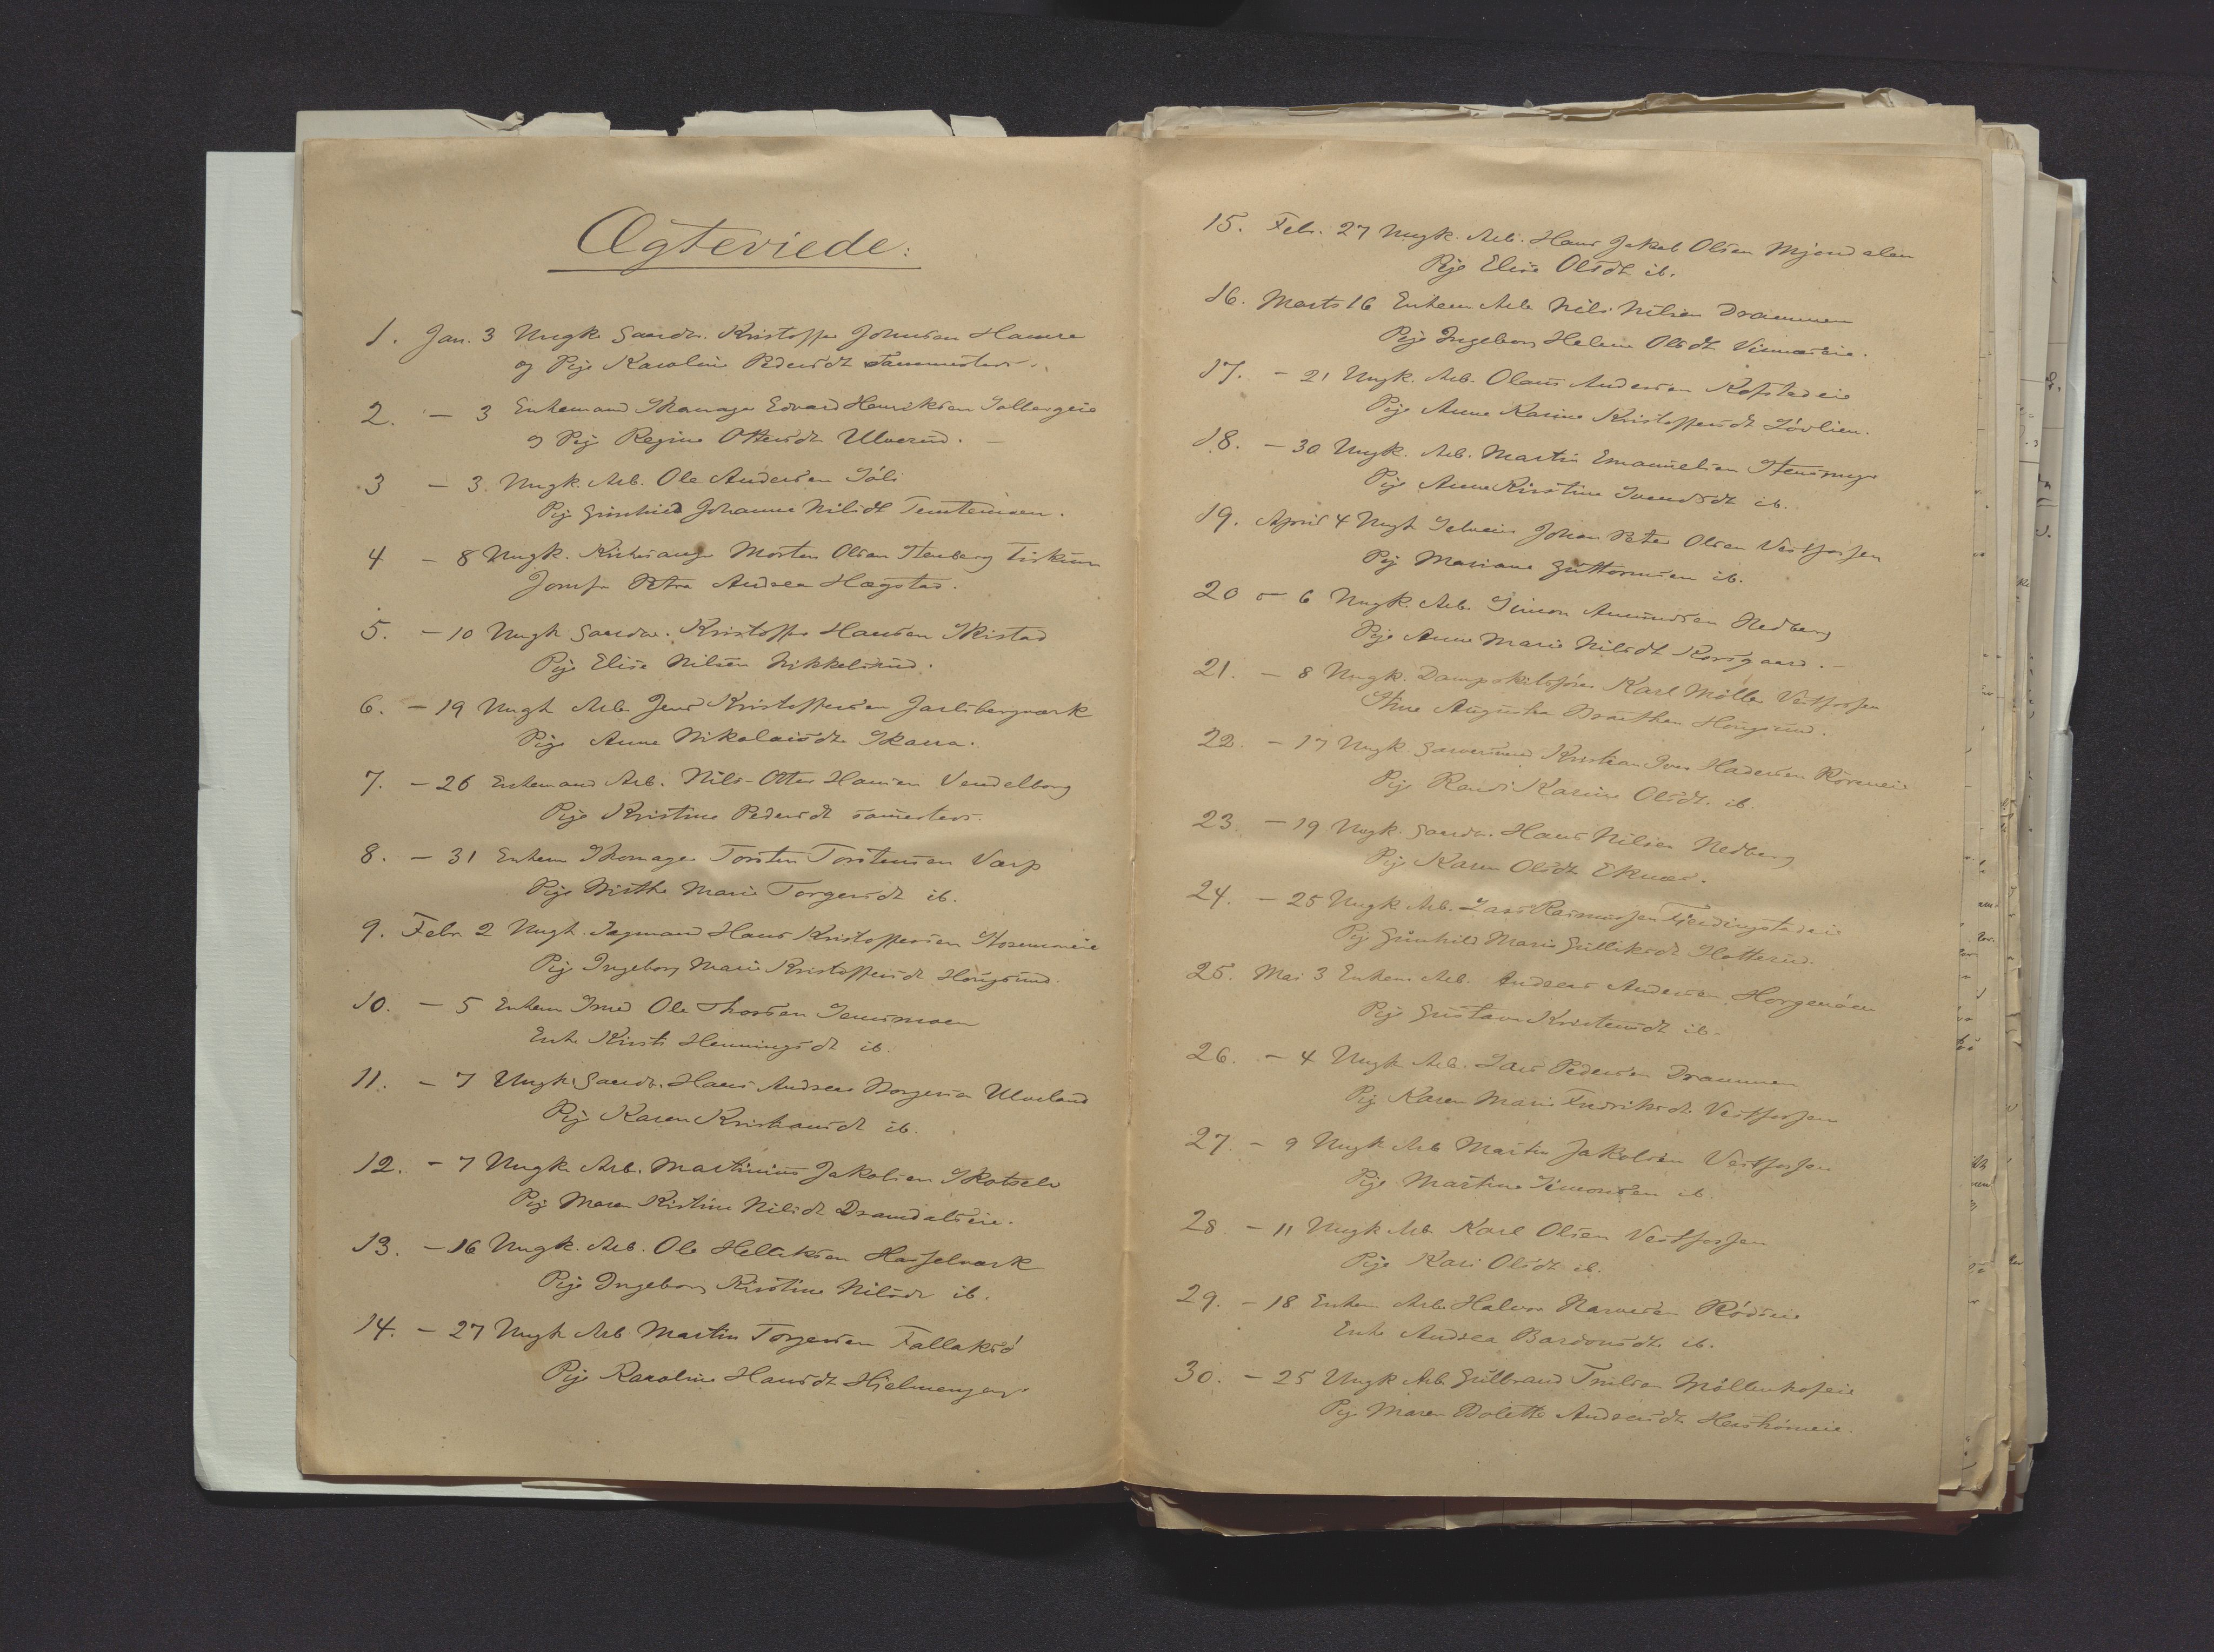 Ægteviede:
1. Jan. 3 Ungk. Gaardbr. Kristoffer Johnsen Hamre
og Pige Karoline Pedersdt. sammesteds.
2. — 3 Enkemand Skomager Edvard Henriksen Sollergeie
og Pige Regine Ottersdt. Ulverud.
3 — 3. Ungk. Arb. Ole Andersen Sóli
Pige Gunhild Johanne Nilsdt.
4 — 8 Ungk. Kirkesanger Morten Olsen Stenberg Fiskum
Jomfr. Petra Andrea Hægstad.
5. — 10 Ungk. Gaardbr. Kristoffer Hansen Skistad
Pige Elise Nilsen Mikkelsrud.
6. — 19 Ungk. Arb. Jens Kristoffersen Jarlsbergværk
Pige Anne Nikolaisdt. Skarra.
7. — 26 Enkemand Arb. Nils Otter Hansen Vendelborg
Pige Kristine Pedersdt. sammesteds.
8. — 31 Enkem. Skomager Torsten Torstensen Varp
Pige Birthe Marie Torgersdt. ib.
9. Febr. 2 Ungk. Sagmand Hans Kristoffersen
Pige Ingeborg Marie Kristoffersdt. Hougsund.
10. — 5 Enkem. Smed Ole Thorsen
Enke Kirsti Henningsdt. ib.
11. — 7 Ungk. Gaardbr. Hans Andreas Borgersen Ulveland
Pige Karen Kristiansdt. ib.
12. — 7 Ungk. Arb. Martinius Jakobsen Skotselv
Pige Maren Kirstine Nilsdt. Dramdalseie.
13. — 16 Ungk. Arb. Ole Helliksen Hasselværk
Pige Ingeborg Kirstine Nilsdt. ib.
14. — 27 Ungk. Arb. Martin Torgersen Fallaksó
Pige Karoline Hansdt. Hjelmengen
15. Febr. 27 Ungk. Arb. Hans Jakob Olsen Mjøndalen
Pige Elise Olsdt. ib.
16. Marts 16 Enkem. Arb. Nils Nilsen Drammen
Pige Ingeborg Helene Olsdt.
17. — 21 Ungk. Arb. Olaus Andersen Kopstadeie
Pige Anne Karine Kristoffersdt. Lóvlien.
18. — 30 Ungk. Arb. Martin Emanuelsen
Pige Anne Kirstine Svendsdt. ib.
19. April 4 Ungk. Johan Peter Olsen Vestfossen
Pige Mariane Guttormsen ib.
20 — 6 Ungk. Arb. Simon Amundsen Nedberg
Pige Anne Marie Nilsdt. Korsgaard.
21. — 8 Ungk. Karl Móller Vestfossen
Stine Augusta Braathen Hougsund.
22. — 17 Ungk. Garversvend Kristian Iver Hadersen
Pige Randi Karine Olsdt. ib.
23. — 19 Ungk. Gaardbr. Hans Nilsen Nedberg
Pige Karen Olsdt. Eknes.
24. — 25 Ungk. Arb. Lars Rasmussen Fjerdingstadeie
Pige Gunhild Marie Gulliksdt. Hotterud.
25. Mai 3 Enkem. Arb. Andreas Andersen Horgenåsen
Pige Gustava Kristensdt. ib.
26. — 4 Ungk. Arb. Lars Pedersen Drammen
Pige Karen Marie Fredriksdt. Vestfossen
27. — 9 Ungk. Arb. Martin Jakobsen Vestfossen
Pige Martine Simonsen ib.
28 — 11 Ungk. Arb. Karl Olsen Vestfossen
Pige Kari Olsdt. ib.
29. — 18 Enkem. Arb. Halvor NarvesenRódseie
Enke Andrea Bardonsdt. ib.
30. — 25 Ungk. Arb. Gulbrand Trulsen Móllenhofeie
Pige Maren Bolette Andersdt.